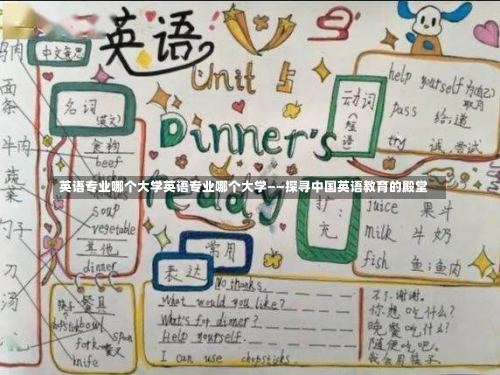 英语
Unit 5
Dinner's
ready
中文意思
鸡肉
面条
牛肉
蔬菜
勺子
刀
汤
名词
(英文)
食物
beef
soup
vegetable
其他
dinner
餐具
chopsticks
bowl
fork
knife
spoon
动词
(短语)
help yourself 为(自己)取用
pass 给;递
try 试,尝试
英语专业哪个大学英语专业哪个大学——探寻中国英语教育的殿堂
扩充
juice 果汁
milk 牛奶
fish 鱼;鱼肉
常用
表达
No, thanks.
What would you like?
What's for dinner?
Help yourself.
I can use chopsticks.
不了,谢谢。
你想吃什么?
晚餐吃什么?
随便吃吧。
我会用筷子。